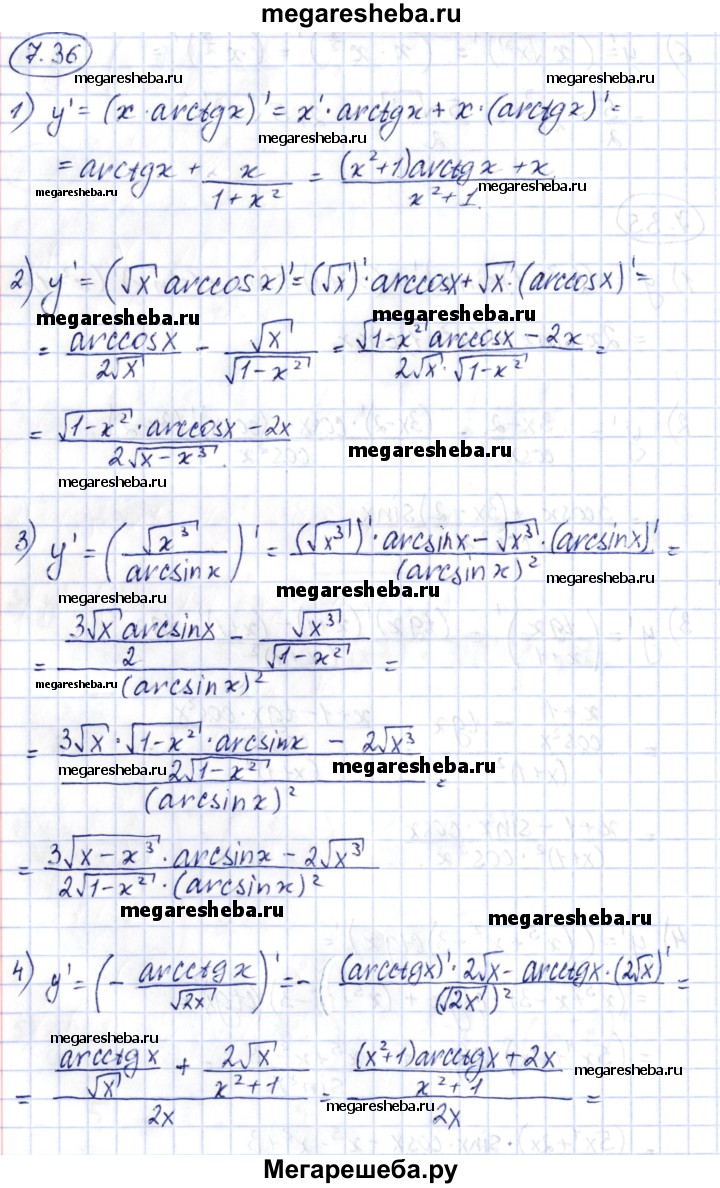 megaresheba.ru
7.36
megaresheba.ru megaresheba.ru
1) y' = (x · arctgx)' = x' · arctgx + x · (arctgx)' =
megaresheba.ru
= arctgx + x/(1+x²) = ((x²+1)arctgx + x)/(x²+1).
megaresheba.ru megaresheba.ru
2) y' = (√x arccosx)' = (√x)' · arccosx + √x · (arccosx)' =
megaresheba.ru megaresheba.ru
= arccosx/(2√x) - √x/√(1-x²) = (√(1-x²) arccosx - 2x)/(2√x · √(1-x²)) =
= (√(1-x²) · arccosx - 2x)/(2√(x-x³)).
megaresheba.ru
megaresheba.ru
3) y' = (√x³/arcsinx)' = ((√x³)' · arcsinx - √x³ · (arcsinx)')/(arcsinx)² =
megaresheba.ru megaresheba.ru
= (3√x arcsinx/2 - √x³/√(1-x²))/(arcsinx)² =
megaresheba.ru
= ((3√x · √(1-x²) · arcsinx - 2√x³)/(2√(1-x²)))/(arcsinx)² =
megaresheba.ru megaresheba.ru
= (3√(x-x³) · arcsinx - 2√x³)/(2√(1-x²) · (arcsinx)²
megaresheba.ru
megaresheba.ru
4) y' = (- arcctgx/√2x)' = - ((arcctgx)' · 2√x - arcctgx · (2√x)')/(√2x)² =
megaresheba.ru
= (arcctgx/√x + 2√x/(x²+1))/2x = (((x²+1)arcctgx + 2x)/(x²+1))/2x =
megaresheba.ru megaresheba.ru
Мегарешеба.ру